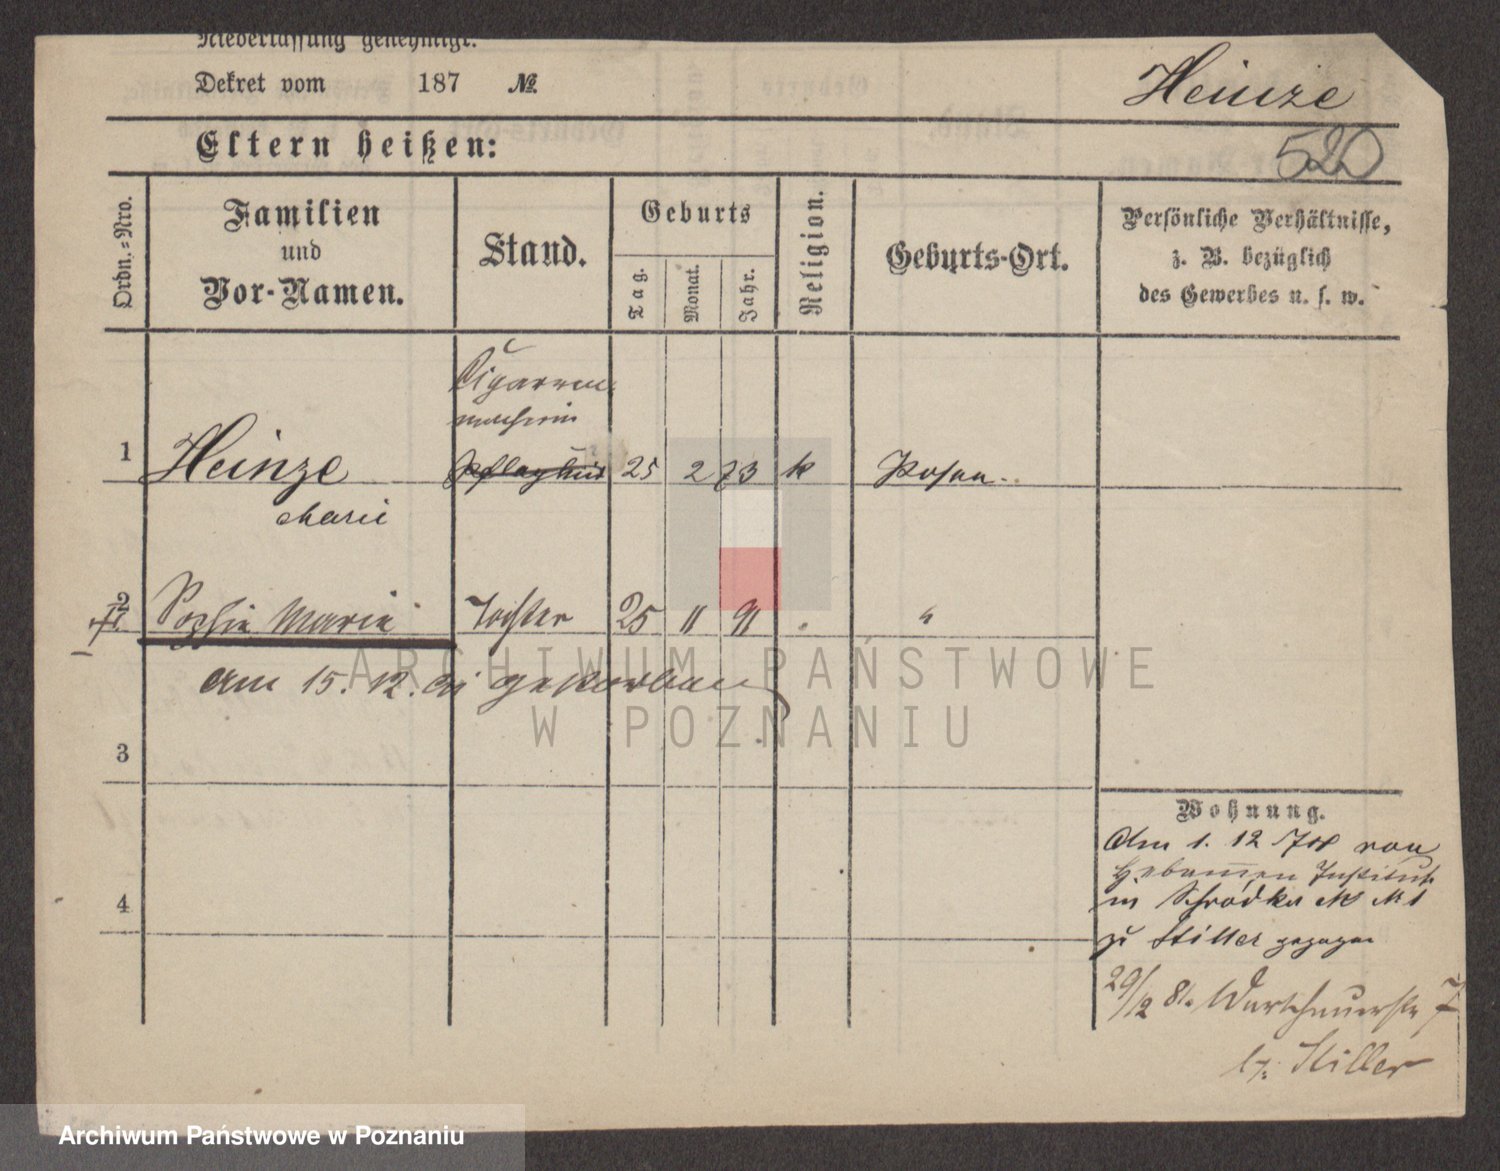 Niederlassung genehmigt.
Dekret vom 187 №
Heinze
Eltern heißen:
520
Ordn.=Nro.
Familien
und
Vor-Namen.
Stand.
Geburts
Tag.
Monat.
Jahr.
Religion.
Geburts-Ort.
Persönliche Verhältnisse,
z. B. bezüglich
des Gewerbes u. s. w.
Cigarren
macherin
1 Heinze 25 2 73 k Posen
Marie
2 Sophie Marie Tochter 25 11 91 "
am 15. 12. 91 gestorben
3
4
Wohnung.
Am 1. 12 von
Hebammen Institut
in Schrodka № 1
zu Stiller gezogen
29/12 Warschauerstr 7
bz. Stiller
ARCHIWUM PAŃSTWOWE
W POZNANIU
Archiwum Państwowe w Poznaniu